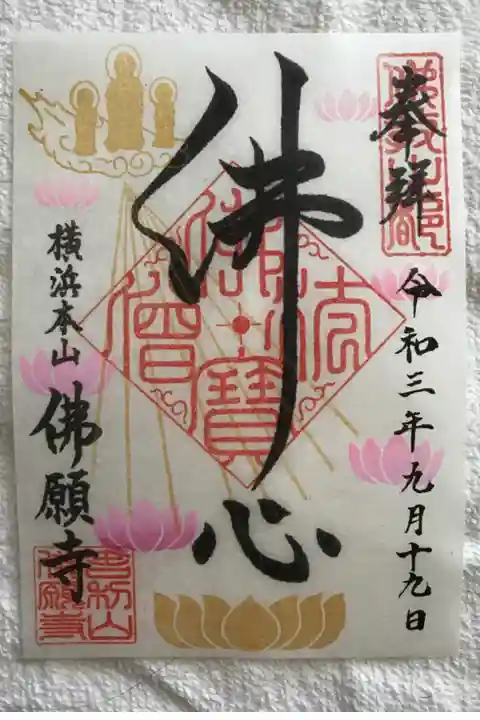 奉拝
令和三年九月十九日
佛心
佛法僧寳
横浜本山
佛願寺